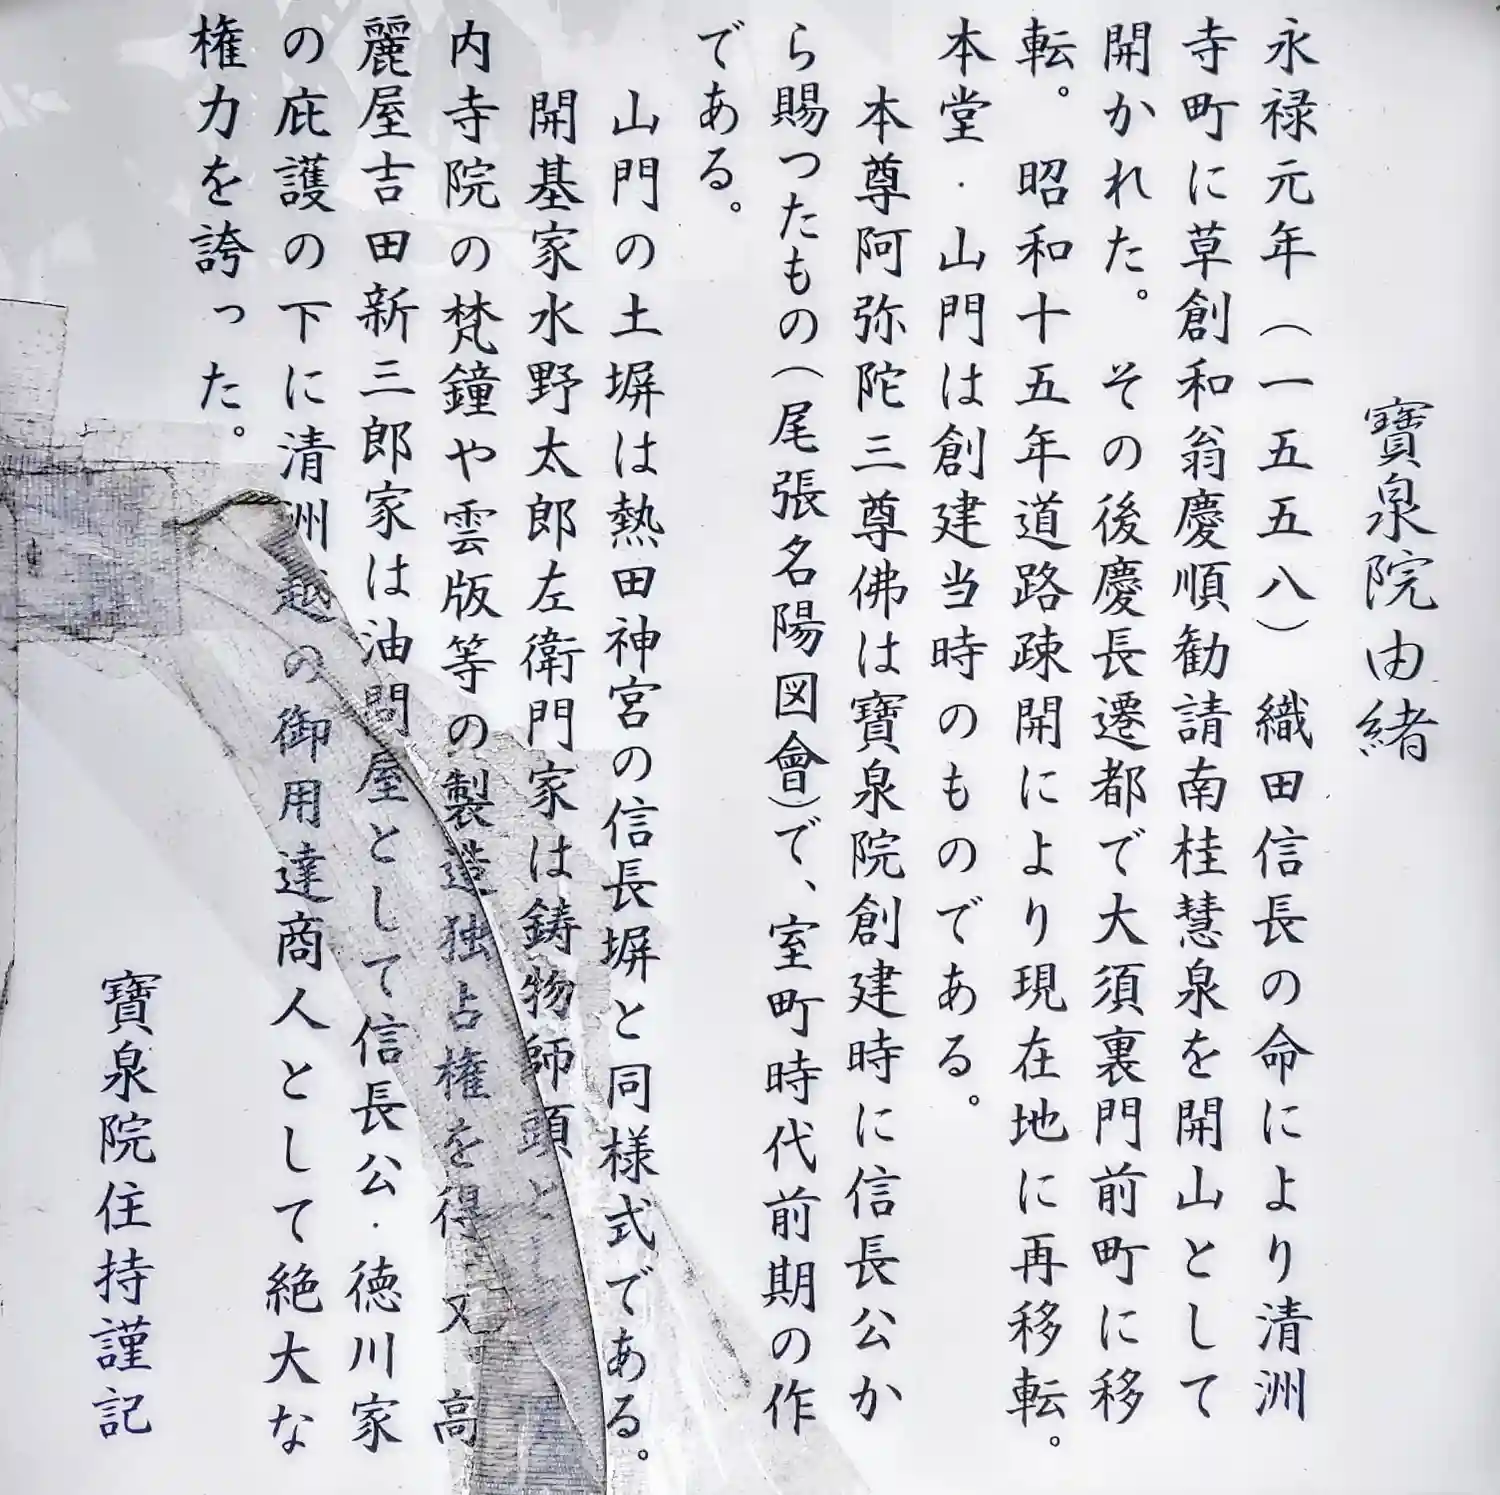 寶泉院由緒
永禄元年（一五五八）　織田信長の命により清洲
寺町に草創和翁慶順勧請南桂慧泉を開山として
開かれた。　その後慶長遷都で大須裏門前町に移
転。　昭和十五年道路疎開により現在地に再移転。
本堂・山門は創建当時のものである。
本尊阿弥陀三尊佛は寶泉院創建時に信長公か
ら賜つたもの（尾張名陽図會）で、室町時代前期の作
である。
山門の土塀は熱田神宮の信長塀と同様式である。
開基家水野太郎左衛門家は鋳物師頭と
内寺院の梵鐘や雲版等の製造独占権を得　又　高
麗屋吉田新三郎家は油問屋として信長公・徳川家
の庇護の下に清洲越の御用達商人として絶大な
権力を誇った。
寶泉院住持謹記